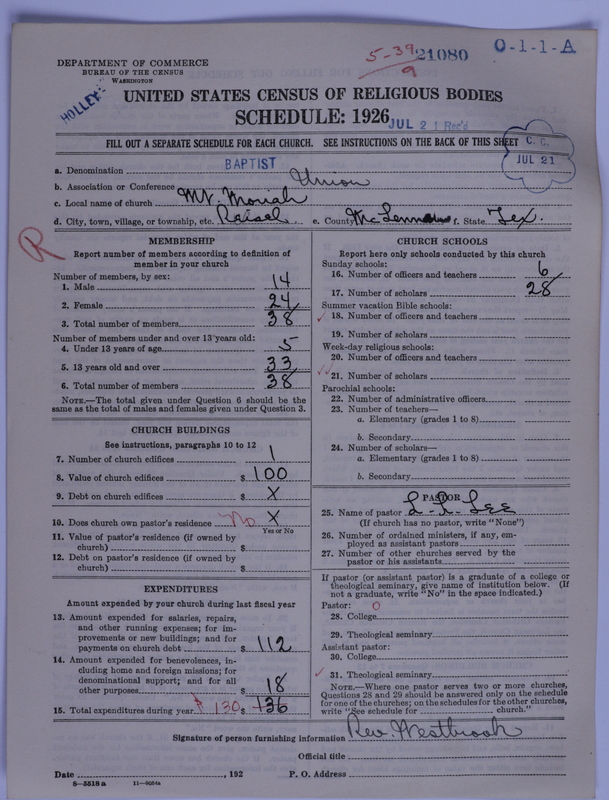 5-39 21080
9
0-1-1-A
DEPARTMENT OF COMMERCE
BUREAU OF THE CENSUS
WASHINGTON
HOLLEY
UNITED STATES CENSUS OF RELIGIOUS BODIES
SCHEDULE: 1926
JUL 21 Rec'd
FILL OUT A SEPARATE SCHEDULE FOR EACH CHURCH. SEE INSTRUCTIONS ON THE BACK OF THIS SHEET
C. C.
JUL 21
a. Denomination BAPTIST
b. Association or Conference Union
c. Local name of church Mt. Moriah
d. City, town, village, or township, etc. e. County McLennan f. State Tex.
R
MEMBERSHIP
Report number of members according to definition of
member in your church
Number of members, by sex:
1. Male 14
2. Female 24
3. Total number of members 38
Number of members under and over 13 years old:
4. Under 13 years of age 5
5. 13 years old and over 33
6. Total number of members 38
NOTE.—The total given under Question 6 should be the
same as the total of males and females given under Question 3.
CHURCH BUILDINGS
See instructions, paragraphs 10 to 12
7. Number of church edifices 1
8. Value of church edifices $ 100
9. Debt on church edifices $ X
10. Does church own pastor's residence No X
Yes or No
11. Value of pastor's residence (if owned by
church) $
12. Debt on pastor's residence (if owned by
church) $
EXPENDITURES
Amount expended by your church during last fiscal year
13. Amount expended for salaries, repairs,
and other running expenses; for im-
provements or new buildings; and for
payments on church debt $ 112
14. Amount expended for benevolences, in-
cluding home and foreign missions; for
denominational support; and for all
other purposes $ 18
15. Total expenditures during year 130 $ 136
CHURCH SCHOOLS
Report here only schools conducted by this church
Sunday schools:
16. Number of officers and teachers 6
17. Number of scholars 28
Summer vacation Bible schools:
18. Number of officers and teachers
19. Number of scholars
Week-day religious schools:
20. Number of officers and teachers
21. Number of scholars
Parochial schools:
22. Number of administrative officers
23. Number of teachers—
a. Elementary (grades 1 to 8)
b. Secondary
24. Number of scholars—
a. Elementary (grades 1 to 8)
b. Secondary
PASTOR
25. Name of pastor L. R. Lee
(If church has no pastor, write "None")
26. Number of ordained ministers, if any, em-
ployed as assistant pastors
27. Number of other churches served by the
pastor or his assistants
If pastor (or assistant pastor) is a graduate of a college or
theological seminary, give name of institution below. (If
not a graduate, write "No" in the space indicated.)
Pastor: 0
28. College
29. Theological seminary
Assistant pastor:
30. College
31. Theological seminary
NOTE.—Where one pastor serves two or more churches,
Questions 28 and 29 should be answered only on the schedule
for one of the churches; on the schedules for the other churches,
write "See schedule for church."
Signature of person furnishing information Rev Westbrook
Official title
Date , 192 P. O. Address
8—5518 a 11—9054a